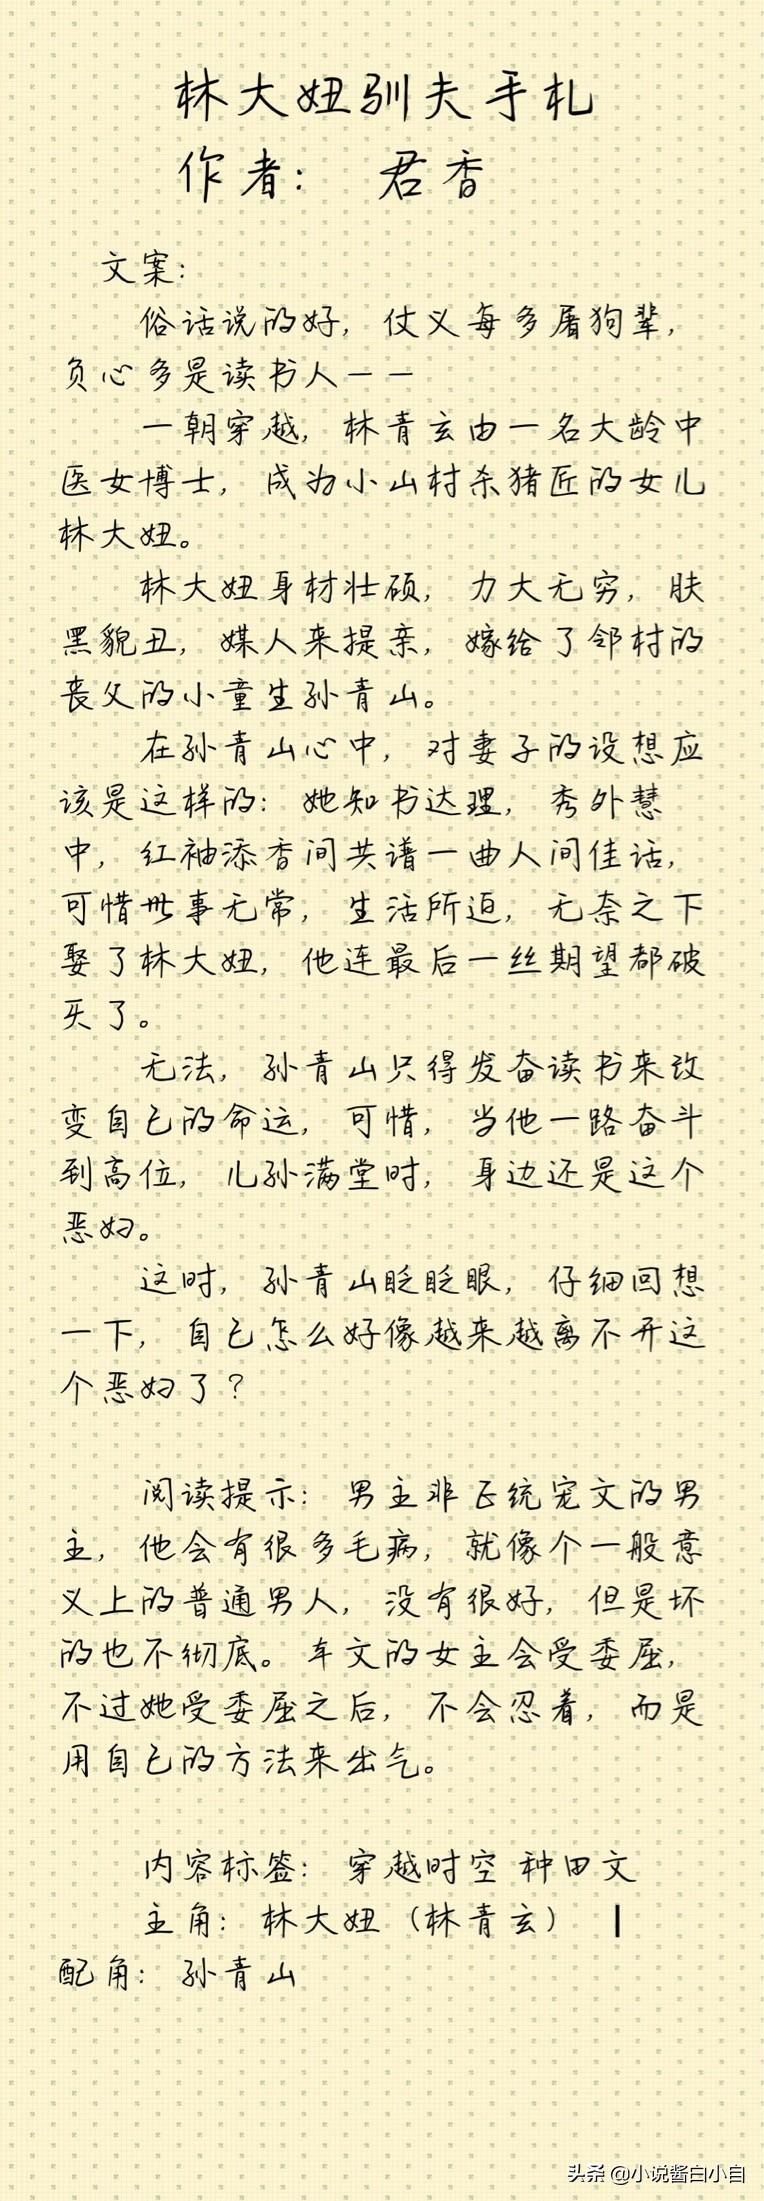 林大妞驯夫手札
作者： 君香
文案：
俗话说的好，仗义每多屠狗辈，
负心多是读书人——
一朝穿越，林青玄由一名大龄中
医女博士，成为小山村杀猪匠的女儿
林大妞。
林大妞身材壮硕，力大无穷，肤
黑貌丑，媒人来提亲，嫁给了邻村的
丧父的小童生孙青山。
在孙青山心中，对妻子的设想应
该是这样的：她知书达理，秀外慧
中，红袖添香间共谱一曲人间佳话，
可惜世事无常，生活所迫，无奈之下
娶了林大妞，他连最后一丝期望都破
灭了。
无法，孙青山只得发奋读书来改
变自己的命运，可惜，当他一路奋斗
到高位，儿孙满堂时，身边还是这个
恶妇。
这时，孙青山眨眨眼，仔细回想
一下，自己怎么好像越来越离不开这
个恶妇了？
阅读提示：男主非正统宠文的男
主，他会有很多毛病，就像个一般意
义上的普通男人，没有很好，但是坏
的也不彻底。本文的女主会受委屈，
不过她受委屈之后，不会忍着，而是
用自己的方法来出气。
内容标签：穿越时空 种田文
主角：林大妞（林青玄） ┃
配角：孙青山
头条 @小说酱白小白